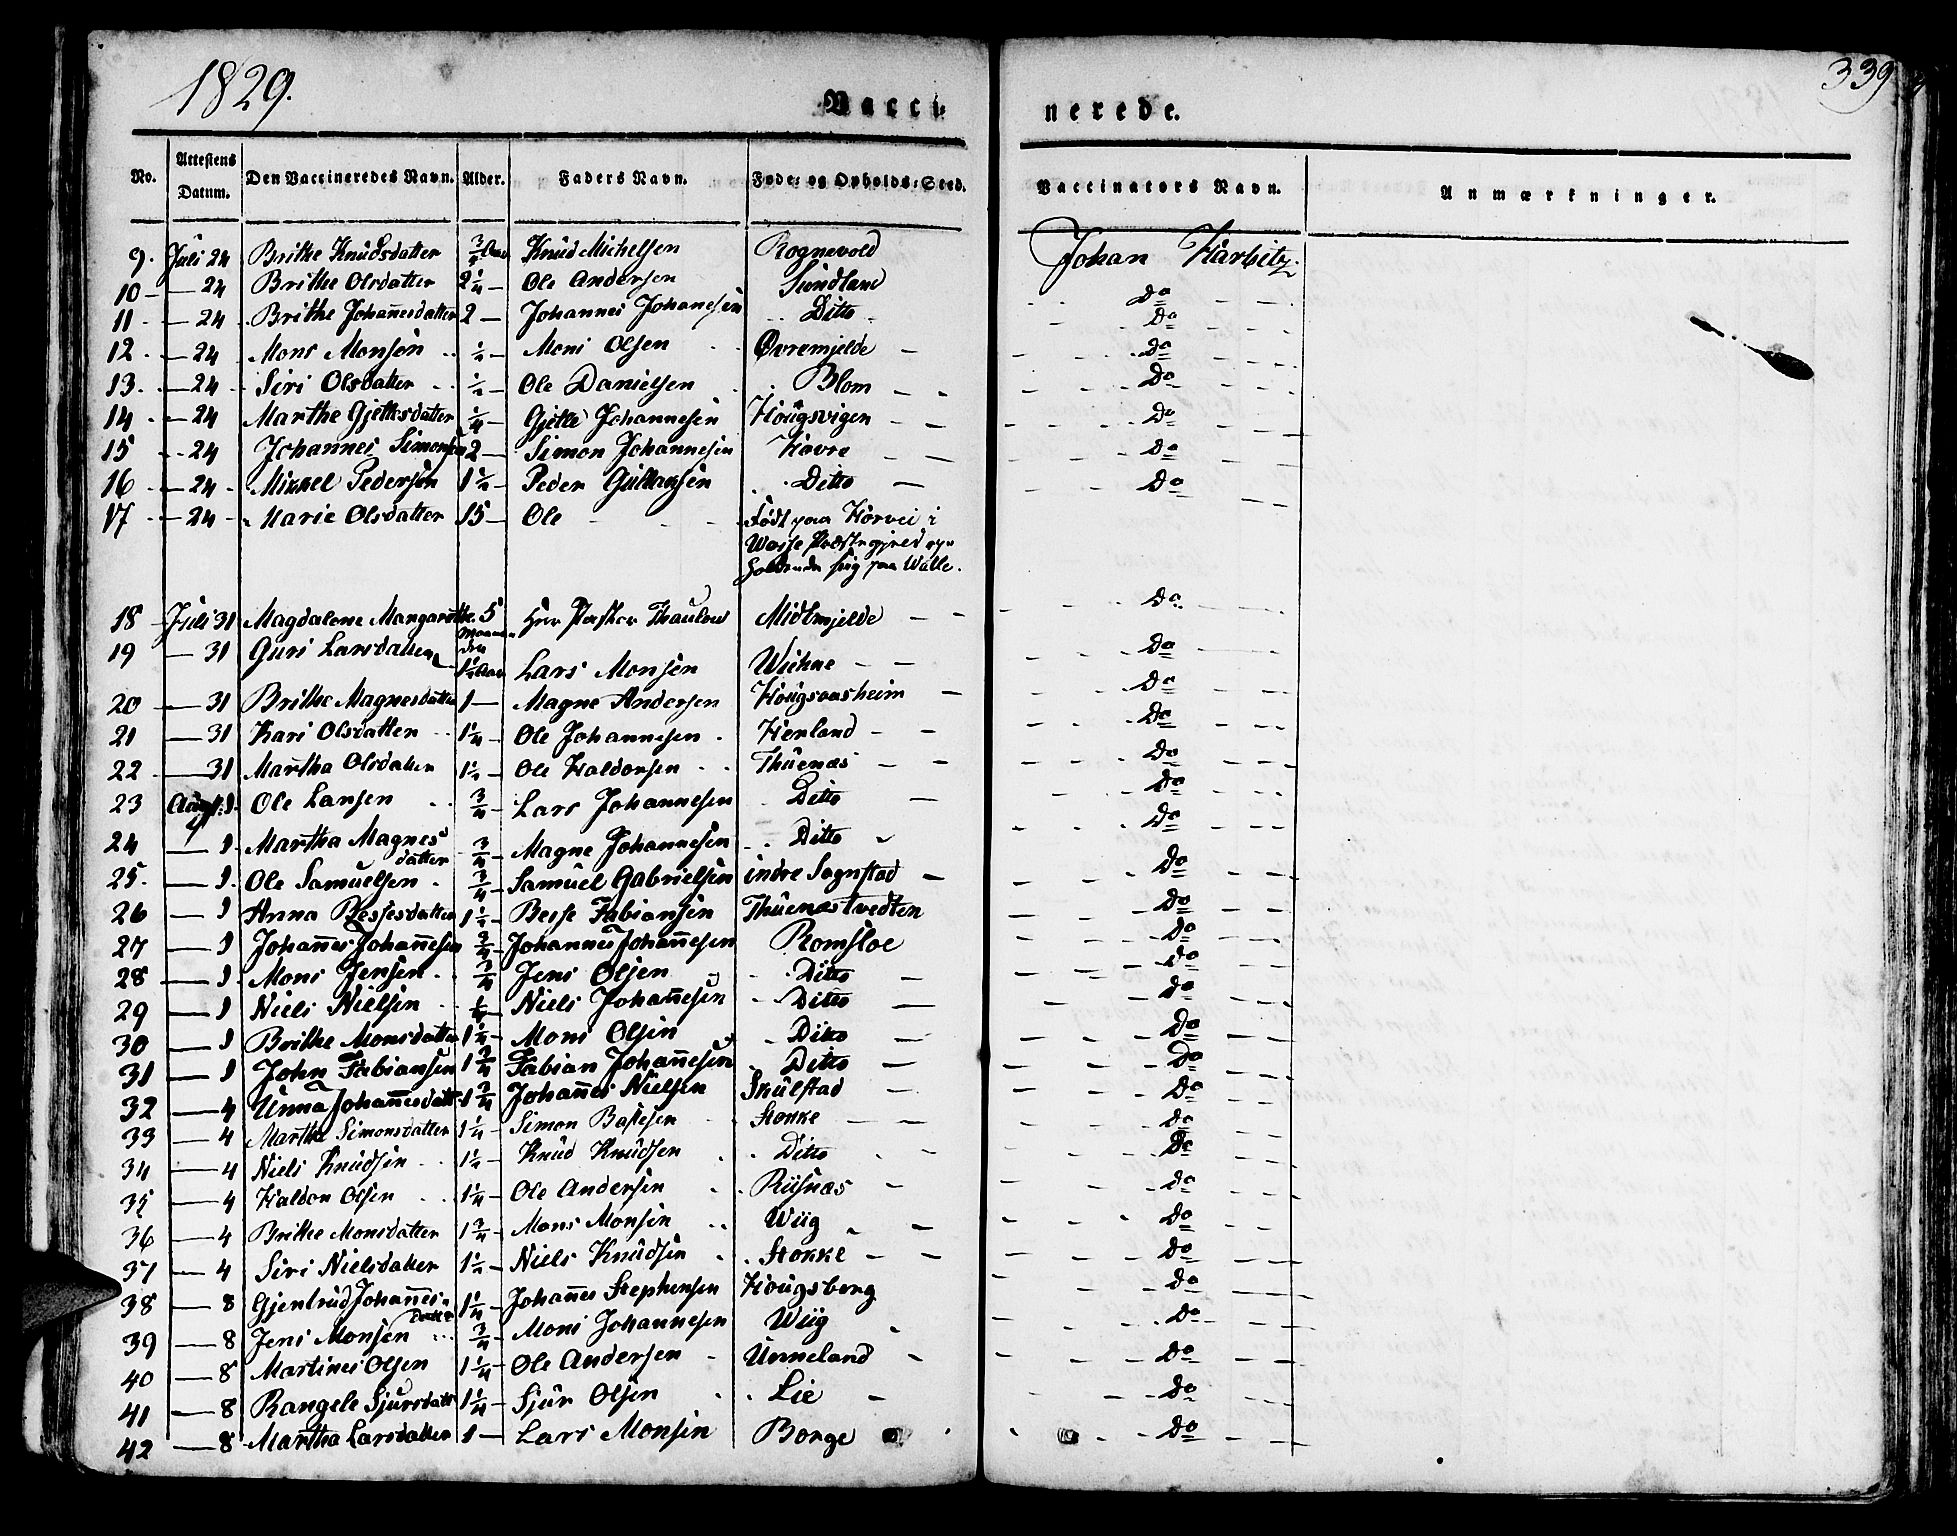 1829.
339
Vaccinerede.
No. Attestens Datum. Den Vaccineredes Navn. Alder. Faders Navn. Føde- og Opholds-Sted. Vaccinators Navn. Anmærkninger.
9. Juli 24 Brithe Knudsdatter 3/4 Aar Knud Michelsen Rognevold Johan Harbitz.
10 — 24 Brithe Olsdatter 2 1/4 — Ole Andersen Sundland Do
11 — 24 Brithe Johan̄esdatter 2 — Johannes Johannesen Ditto Do
12 — 24 Mons Monsen 1/2 — Mons Olsen Øvremjelde — Do
13. — 24 Siri Olsdatter 1/2 — Ole Danielsen Blom — Do
14 — 24 Marthe Gjettesdatter 1/4 — Gjette Johannesen Hougsvigen — Do
15 — 24 Johannes Simonsen 2 — Simon Johannesen Havre — Do
16 — 24 Mikkel Pedersen 1 1/2 — Peder Guttormsen Ditto — Do
17 — 24 Marie Olsdatter 15 — Ole — Født paa Horvei i
Præstegjeld
sig paa Walle.
18 Juli 31 Magdalene Margarethe 5 Maaneder Herr Pastor Thaulow Midtmjelde — Do
19 — 31 Guri Larsdatter 1 1/2 Aar Lars Monsen Wiehne — Do
20 — 31 Brithe Magnesdatter 1 — Magne Andersen Hougsaasheim — Do
21 — 31 Kari Olsdatter 1 1/4 — Ole Johannesen Herland — Do
22 — 31 Martha Olsdatter 1 1/2 — Ole Haldorsen Thuenæs — Do
23 August 1. Ole Larsen 3/4 — Lars Johannesen Ditto — Do
24 — 1 Martha Magnesdatter 3/4 — Magne Johannesen Ditto Do
25. — 1. Ole Samuelsen 3/4 — Samuel Gabrielsen indre Sognstad — Do
26 — 1 Anna Bessesdatter 1 1/2 — Besse Fabiansen Thuenæstvedten Do
27 — 1 Johan̄es Johan̄esen 3/4 — Johannes Johan̄esen Romsloe Do
28 — 1 Mons Jensen 3/4 Jens Olsen Ditto — Do
29 — 1 Niels Nielsen Niels Johan̄esen Ditto — Do
30 — 1 Brithe Monsdatter 1 1/2 — Mons Olsen Ditto — Do
31 — 1 John Fabiansen 1 3/4 Fabian Johan̄esen Ditto — Do
32 — 4 Unna Johan̄esdatt 1 3/4 Johan̄es Nielsen Skulstad — Do
33 — 4 Marthe Simonsdatter 1 1/4 — Simon Støkke — Do
34 — 4 Niels Knudsen 1 1/2 — Knud Knudsen Ditto Do
35 — 4 Haldor Olsen 1 1/4 — Ole Andersen Riisnæs — Do
36 — 4 Brithe Monsdatter 1 3/4 — Mons Monsen Wiig — Do
37 — 4 Siri Nielsdatter 1 1/2 — Niels Knudsen Støkke — Do
38 — 8 Gjertrud Johan̄es-Datter 1 1/4 — Johan̄es Stephensen Hougsberg Do
39 — 8 Jens Monsen 3/4 — Mons Johannesen Wiig Do
40 — 8 Martines Olsen 1 1/4 — Ole Andersen Unneland Do
41 — 8 Rangele Sjursdatt 1 1/4 — Sjur Olsen Lie — Do
42 — 8 Martha Larsdatter 1 — Lars Monsen Borge Do